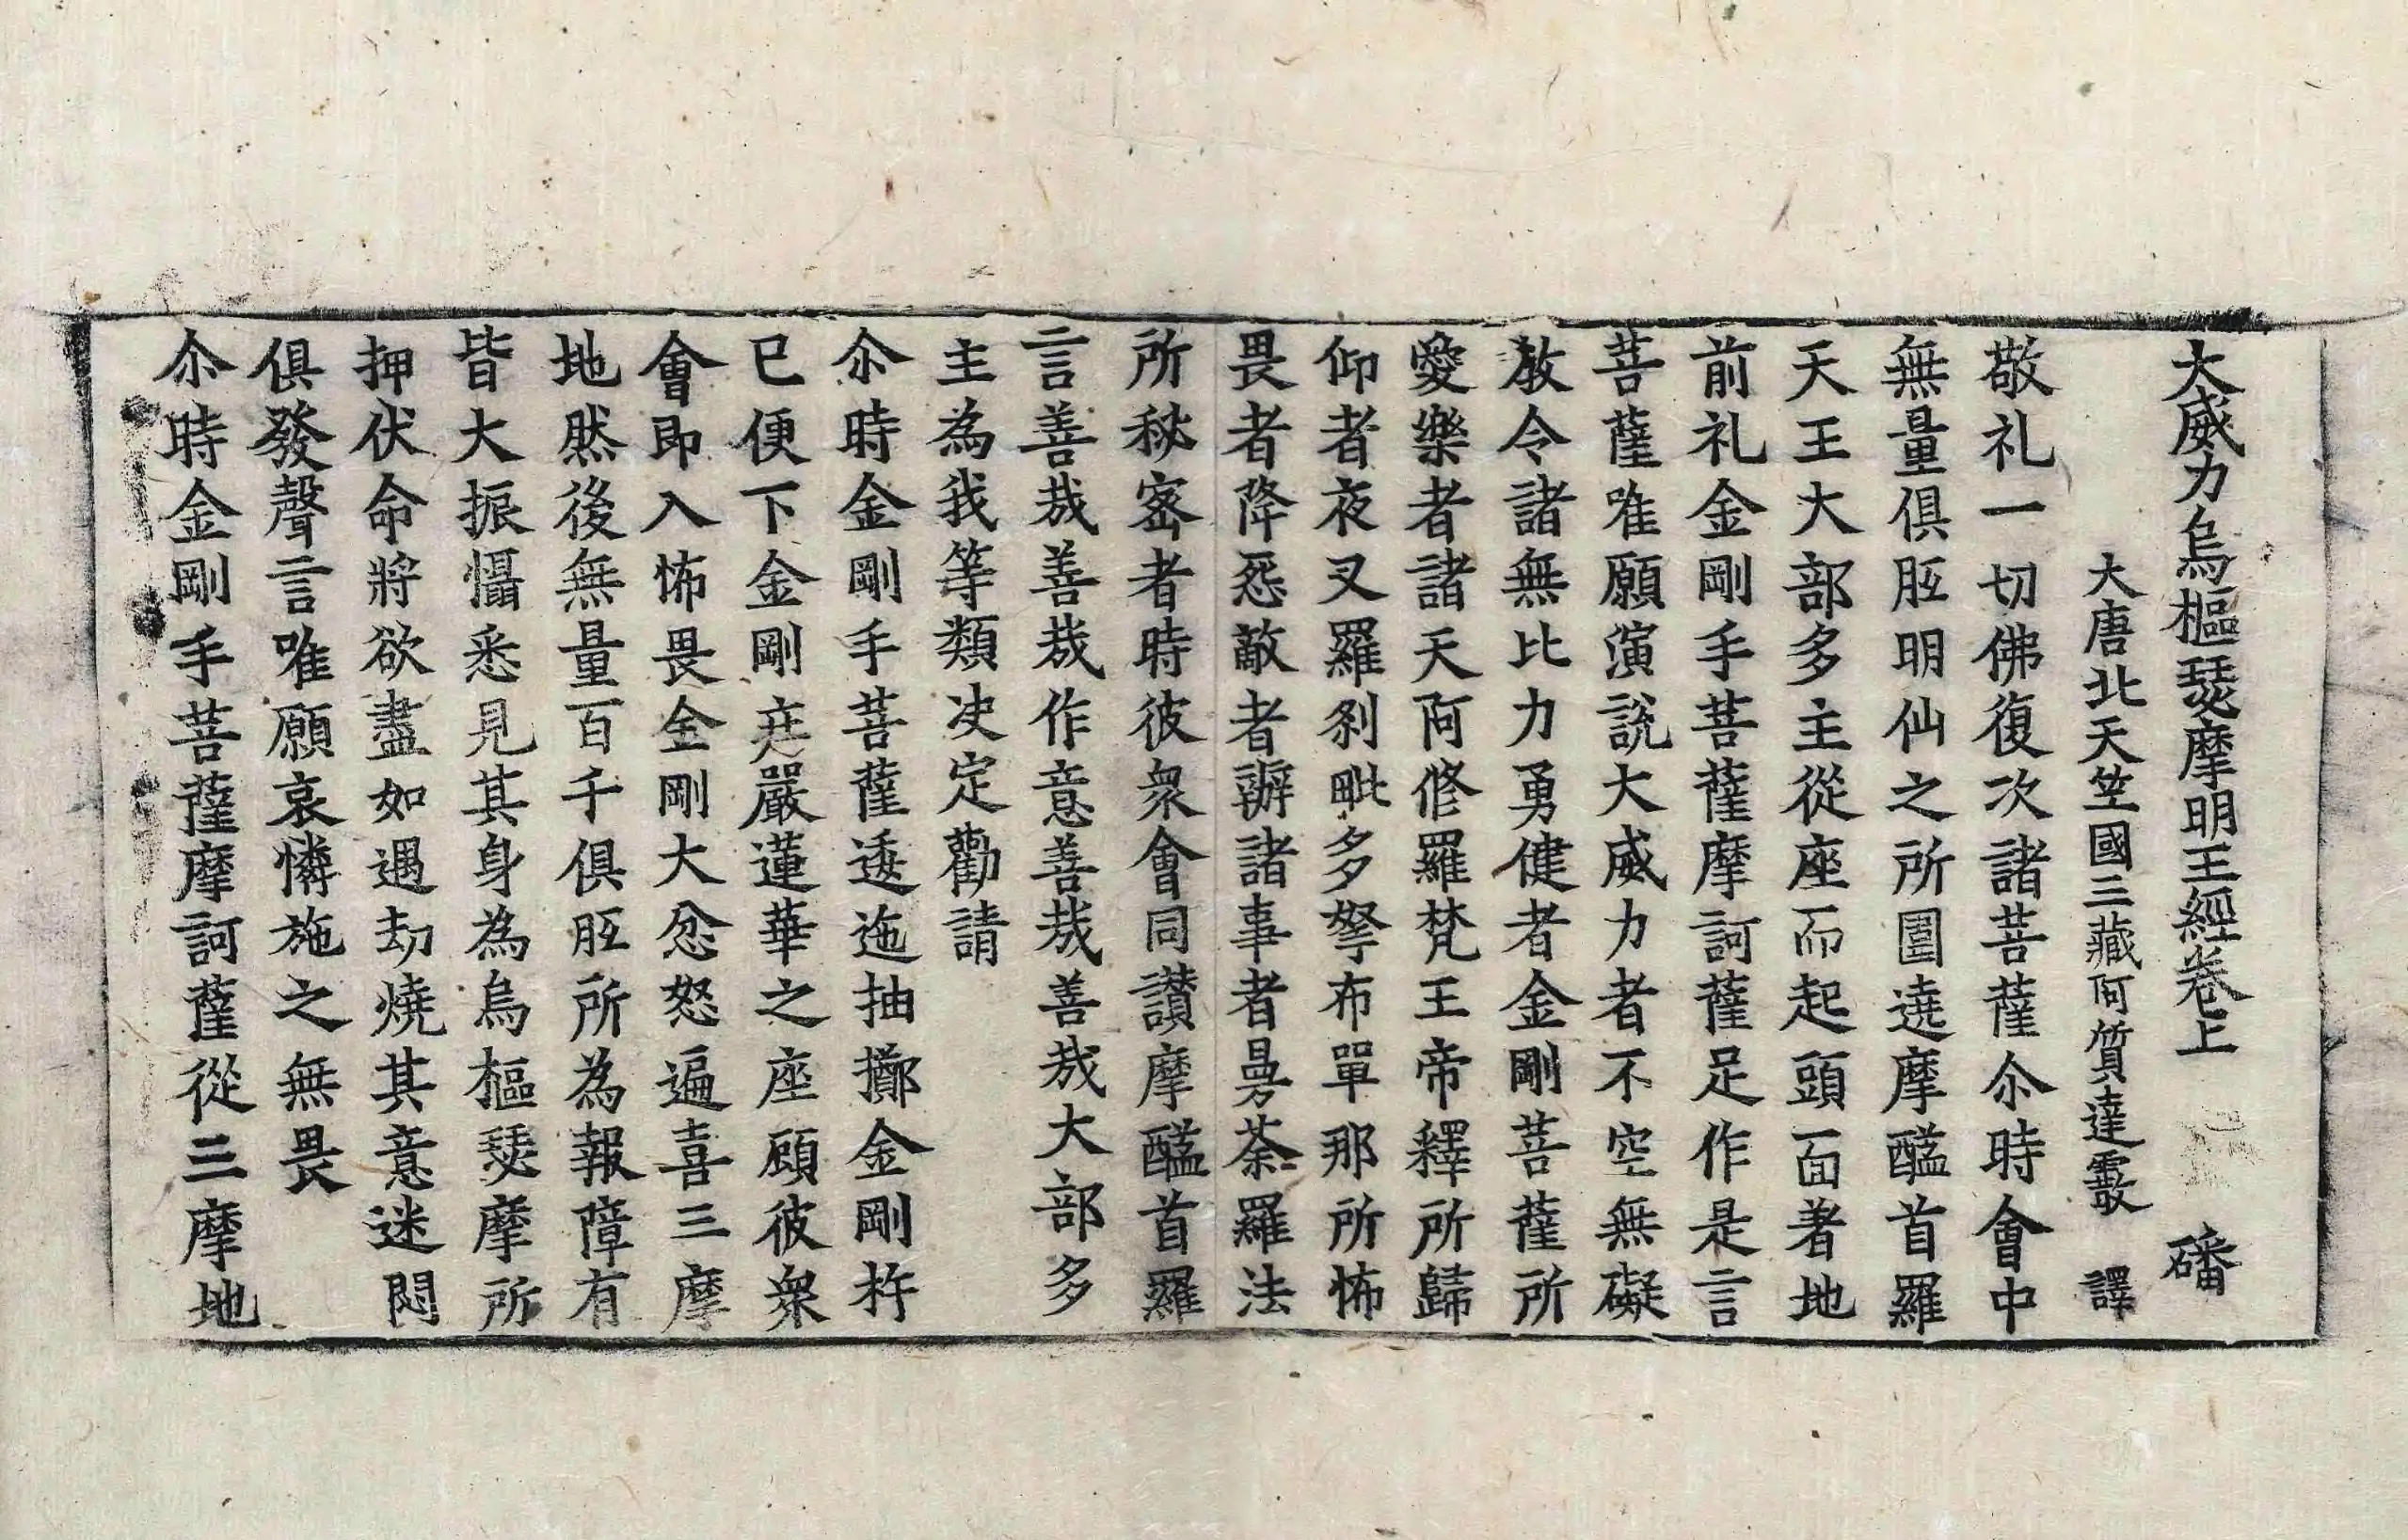 大威力烏樞瑟摩明王經卷上　磻
大唐北天竺國三藏阿質達霰　譯
敬礼一切佛復次諸菩薩尒時會中
無量俱胝明仙之所圍遶摩醯首羅
天王大部多主從座而起頭面著地
前礼金剛手菩薩摩訶薩足作是言
菩薩唯願演說大威力者不空無礙
教令諸無比力勇健者金剛菩薩所
愛樂者諸天阿修羅梵王帝釋所歸
仰者夜叉羅剎毗多拏布單那所怖
畏者降怨敵者辦諸事者曼荼羅法
所秘密者時彼衆會同讃摩醯首羅
言善哉善哉作意善哉善哉大部多
主為我等類决定勸請
尒時金剛手菩薩逶迤抽擲金剛杵
已便下金剛莊嚴蓮華之座顧彼衆
會即入怖畏金剛大忿怒遍喜三摩
地然後無量百千俱胝所為報障有
皆大振懾悉見其身為烏樞瑟摩所
押伏命將欲盡如遇劫燒其意迷悶
俱發聲言唯願哀憐施之無畏
尒時金剛手菩薩摩訶薩從三摩地